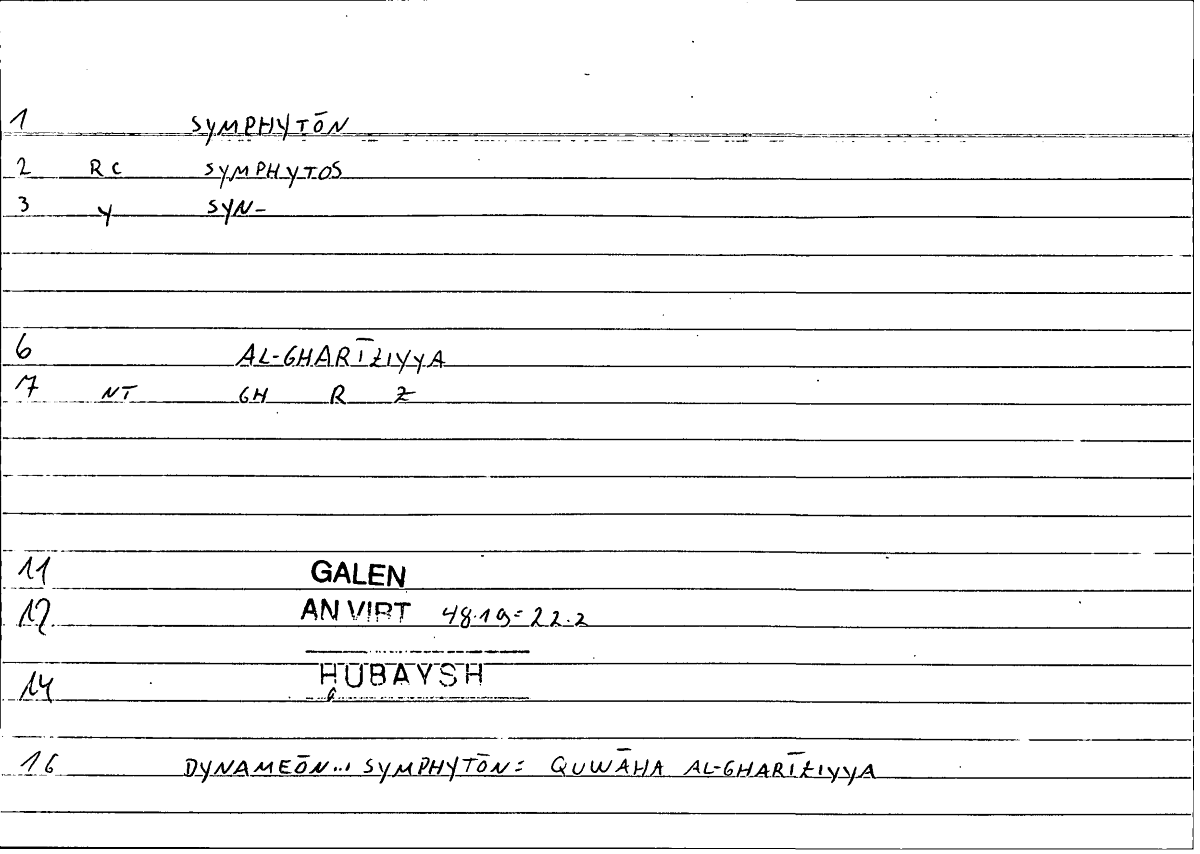 1 SYMPHYTŌN
2 RC SYMPHYTOS
3 Y SYN-
6 AL-GHARĪZIYYA
7 NT GH R Z
11 GALEN
12 AN VIRT 48.19=22.2
14 ḤUBAYSH
16 DYNAMEŌN... SYMPHYTŌN: QUWĀHA AL-GHARĪZIYYA